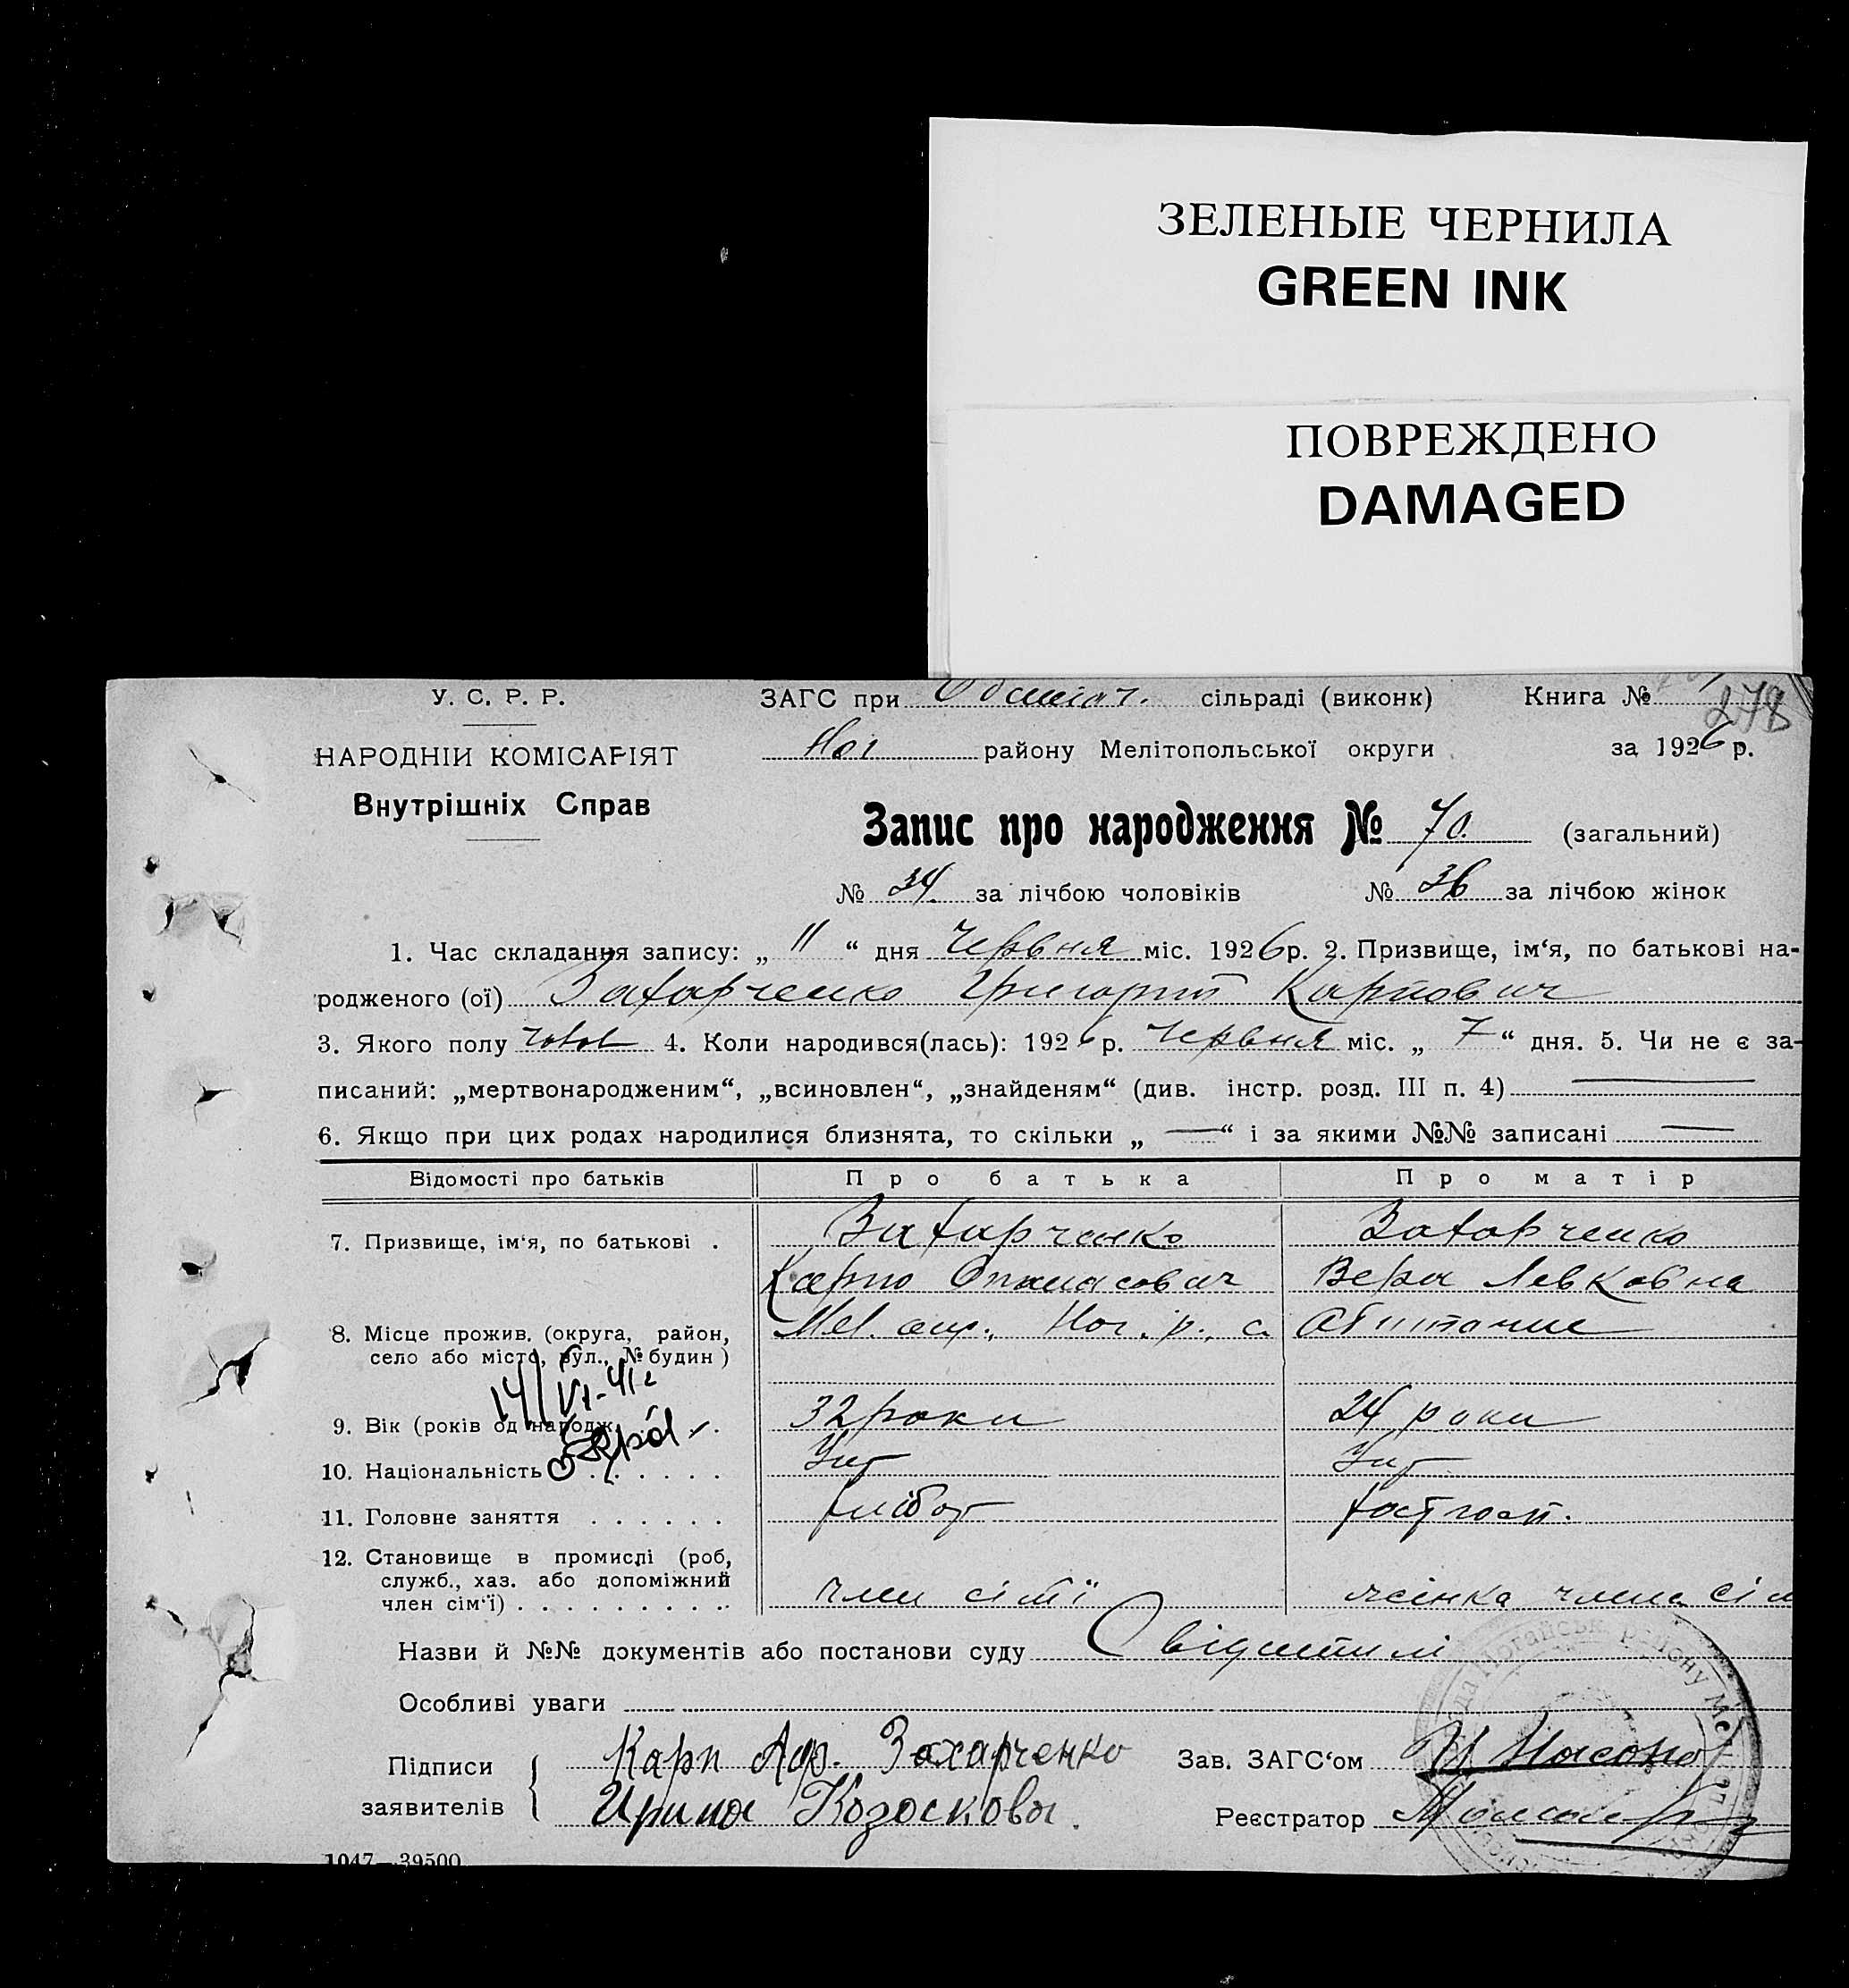 ЗЕЛЕНЫЕ ЧЕРНИЛА
GREEN INK
ПОВРЕЖДЕНО
DAMAGED
У. С. Р. Р. ЗАГС при сільраді (виконк) Книга № 278
НАРОДНІЙ КОМІСАРІЯТ Ног району Мелітопольської округи за 1926 р.
Внутрішніх Справ
Запис про народження № 70. (загальний)
№ 34. за лічбою чоловіків № 36 за лічбою жінок
1. Час складання запису: „ 11 “ дня Червня міс. 1926 р. 2. Призвище, ім‘я, по батькові на-
родженого (ої) Захарченко Григорій Карпович
3. Якого полу чолов 4. Коли народився(лась): 1926 р. Червня міс. „ 7 “ дня. 5. Чи не є за-
писаний: „мертвонародженим“, „всиновлен“, „знайденям“ (див. інстр. розд. III п. 4) —
6. Якщо при цих родах народилися близнята, то скільки „ — “ і за якими №№ записані —
Відомості про батьків Про батька Про матір
7. Призвище, ім‘я, по батькові . Захарченко Захарченко
Карпо Опанасович Вера Левковна
8. Місце прожив. (округа, район, Мел. окр., Ног. р., с.
село або місто, вул., № будин)
14/VI-41г
9. Вік (років од народж. 32 роки 24 роки
10. Національність Укр Укр
11. Головне заняття . . . . . . хлібор господ.
12. Становище в промислі (роб,
служб., хаз. або допоміжний
член сім‘ї) . . . . . . . . . член сімї жінка члена сім
Назви й №№ документів або постанови суду
Особливі уваги
Підписи Карп Аф. Захарченко Зав. ЗАГС‘ом
заявителів Ирина Реєстратор
1047—39500